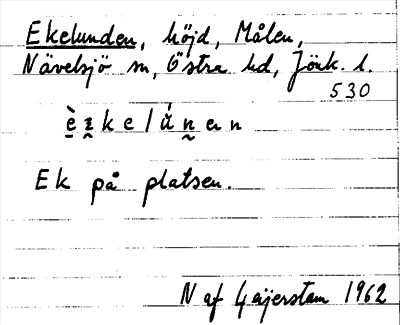 Ekelunden, höjd, Målen,
Nävelsjö sn, Östra hd, Jönk. l.
530
Ek på platsen.
N af Geijerstam 1962